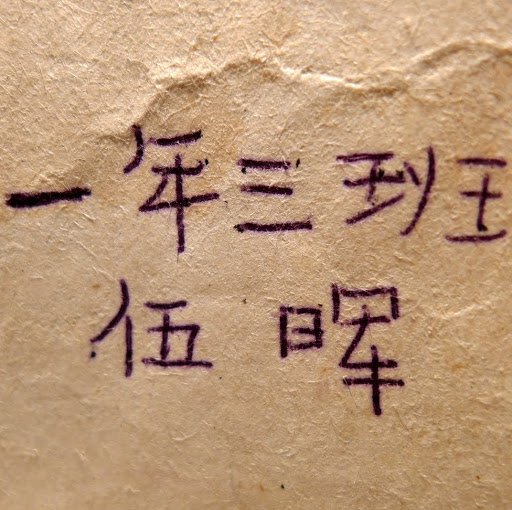 一年三班
伍晖